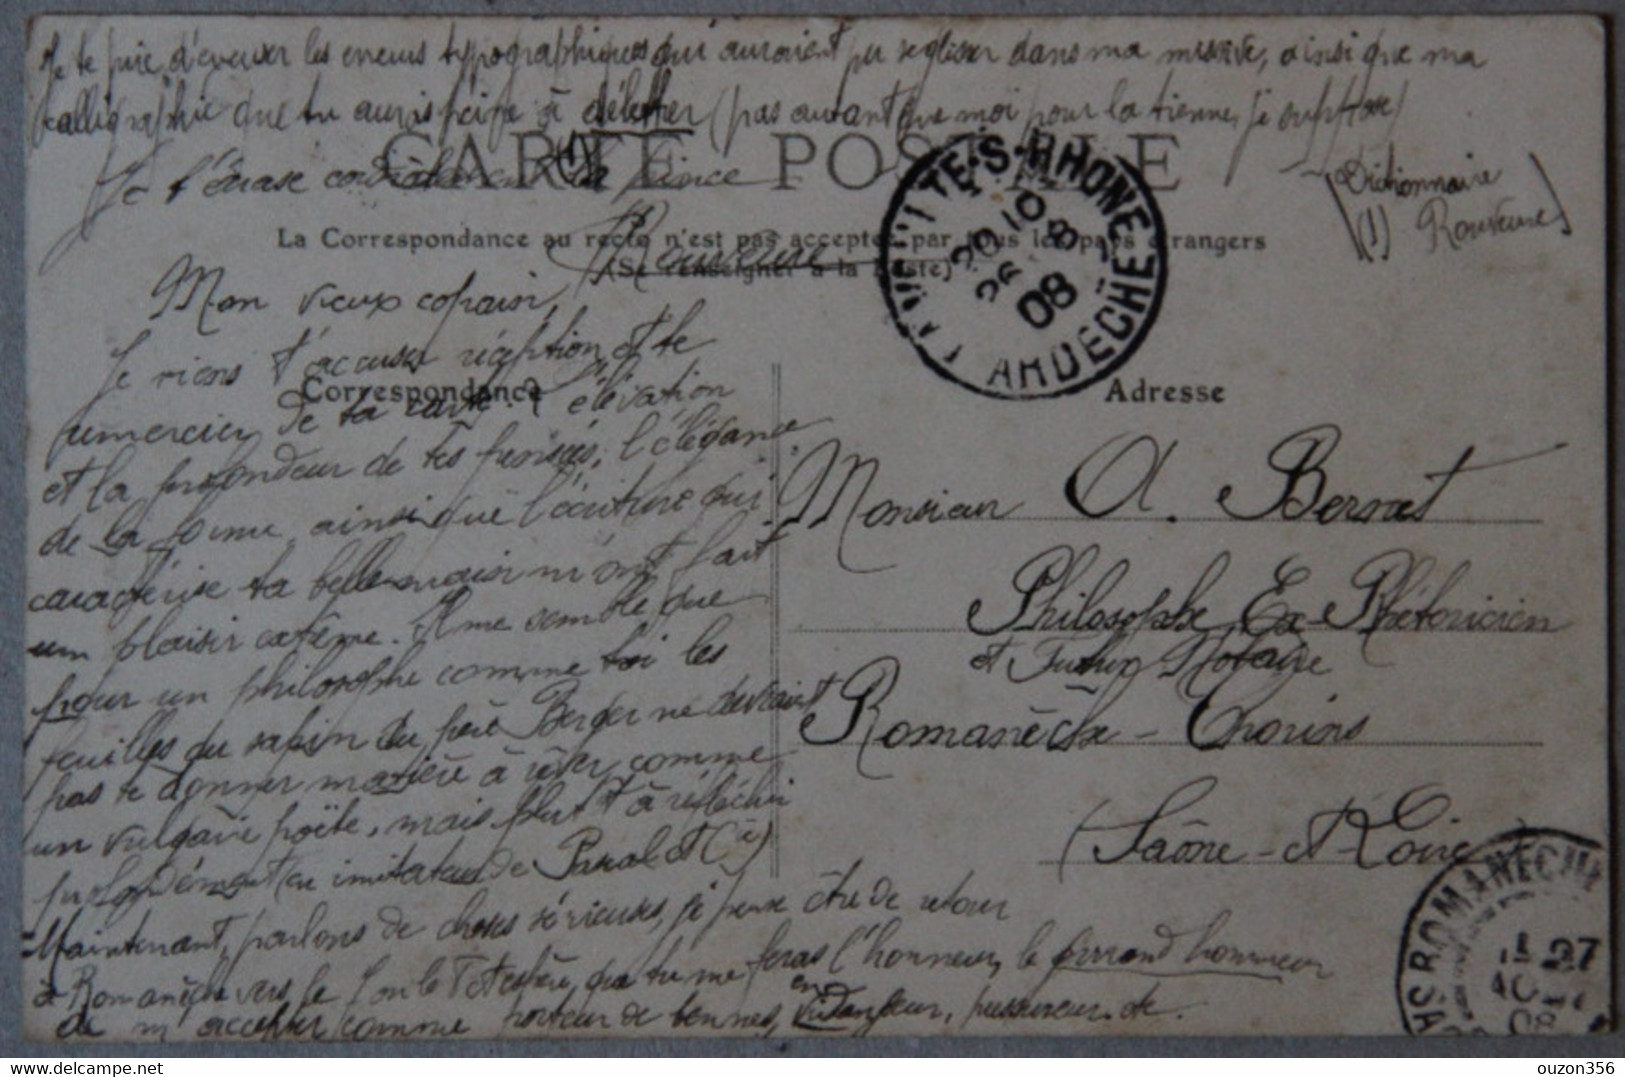 Je te prie d'excuser les erreurs typographiques qui auraient pu se glisser dans ma missive, ainsi que ma
calligraphie que tu auras peine à déletter (pas autant que moi pour la tienne, je suppose)
(1)
CARTE POSTALE
Je t'écrase cordialement la pince
Rouveure
(Dictionnaire
(1) Rouveure)
La Correspondance au recto n'est pas acceptée par tous les pays étrangers
(Se renseigner à la Poste)
LAVOUTE-S-RHONE
20 10
26 8
08
ARDECHE
Correspondance
Adresse
Mon vieux copain,
Je viens t'accuser réception et te
remercier de ta carte. L'élévation
et la profondeur de tes pensées, l'élégance
de la forme ainsi que l'écriture qui
caractérise ta belle main m'ont fait
un plaisir extrême. Il me semble que
pour un philosophe comme toi les
feuilles du sapin du père Berger ne devraient
pas te donner matière à rêver comme
un vulgaire poëte, mais plutôt à réfléchir
profondément (en imitateur de Pascal et Cie)
Maintenant, parlons de choses sérieuses, je pense être de retour
à Romanèche vers le 1er ou le 2 octobre, que tu me feras l'honneur, le grrrand honneur
de m'accepter comme porteur de bennes, en vidangeur, pressureur. etc.
Monsieur A. Bernat
Philosophe Ex-Rhétoricien
et Futur Notaire
Romanèche-Thorins
(Saône-et-Loire)
ROMANECHE
27
08
ouzon356